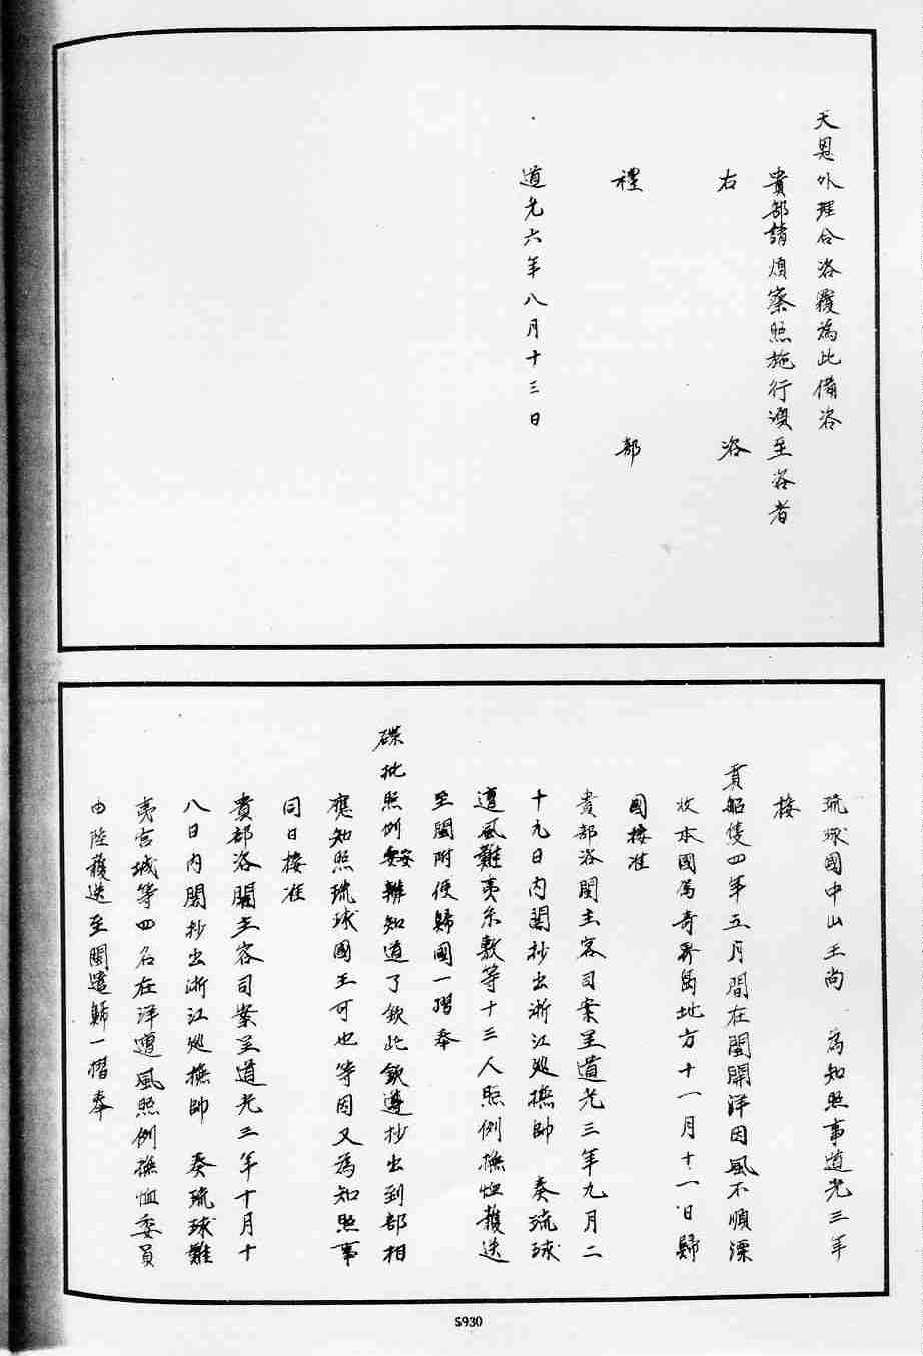 天恩外理合咨覆為此備咨
貴部請煩察照施行湏至咨者
右　咨
禮　部
道光六年八月十三日
琉球國中山王尚　為知照事道光三年
接
貢船隻四年五月間在閩開洋因風不順漂
收本國属奇界島地方十一月十一日歸
國接准
貴部咨開主客司案呈道光三年九月二
十九日内閣抄出浙江廵撫帥　奏琉球
遭風難夷糸數等十三人照例撫恤護送
至閩附便歸國一摺奉
硃批照例妥辦知道了欽此欽遵抄出到部相
應知照琉球國王可也等因又為知照事
同日接准
貴部咨開主客司案呈道光三年十月十
八日内閣抄出浙江廵撫帥　奏琉球難
夷宮城等四名在洋遭風照例撫恤委員
由陸護送至閩遣歸一摺奉
5930